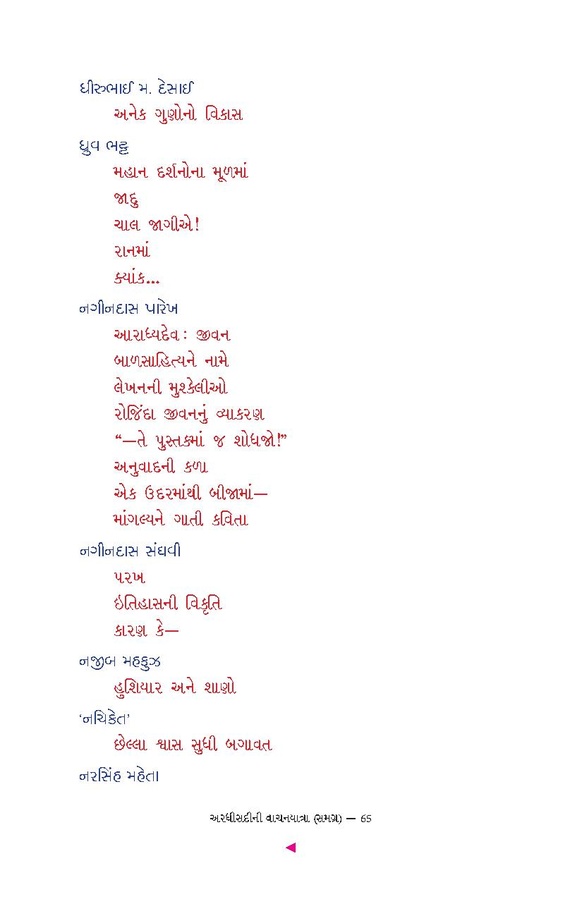 ધીરુભાઈ મ. દેસાઈ
અનેક ગુણોનો વિકાસ
ધ્રુવ ભટ્ટ
મહાન દર્શનોના મૂળમાં
જાદુ
ચાલ જાગીએ!
રાનમાં
ક્યાંક...
નગીનદાસ પારેખ
આરાધ્યદેવ : જીવન
બાળસાહિત્યને નામે
લેખનની મુશ્કેલીઓ
રોજિંદા જીવનનું વ્યાકરણ
“—તે પુસ્તકમાં જ શોધજો!”
અનુવાદની કળા
એક ઉદરમાંથી બીજામાં—
માંગલ્યને ગાતી કવિતા
નગીનદાસ સંઘવી
પરખ
ઇતિહાસની વિકૃતિ
કારણ કે—
નજીબ મહફુઝ
હુશિયાર અને શાણો
‘નચિકેત’
છેલ્લા શ્વાસ સુધી બગાવત
નરસિંહ મહેતા
અરધીસદીની વાચનયાત્રા (સમગ્ર) — 65